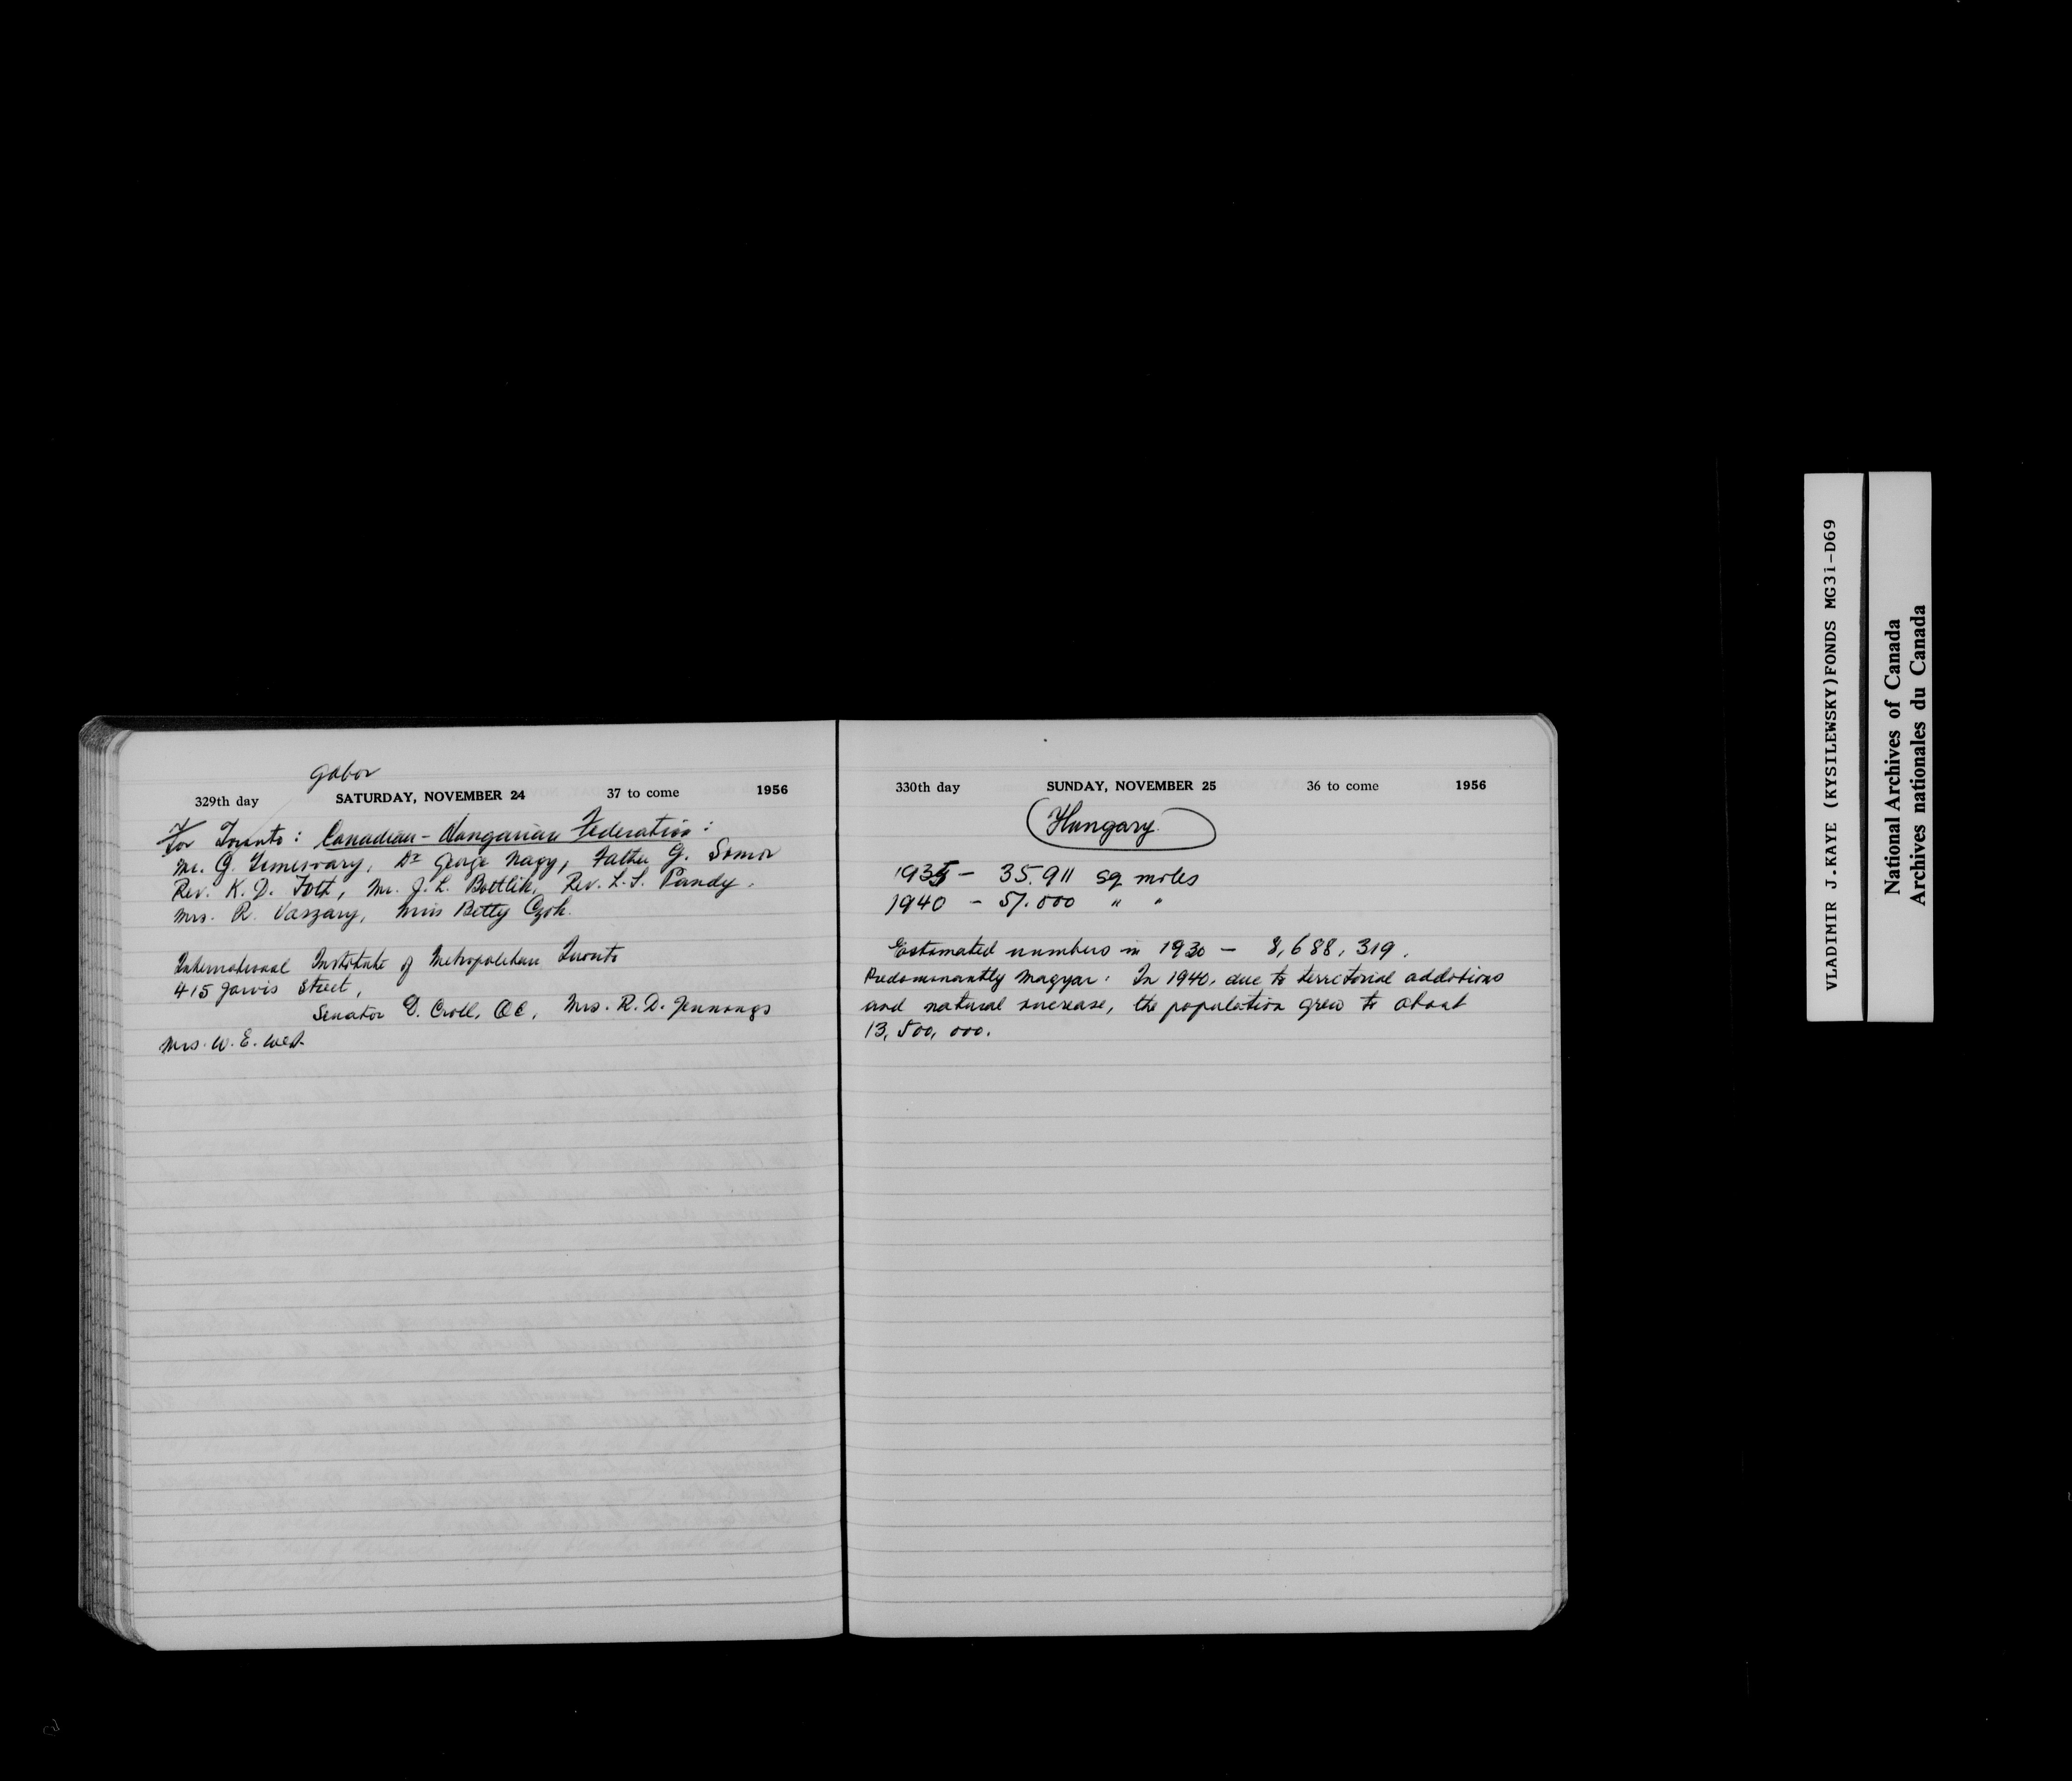 Gabor
329th day SATURDAY, NOVEMBER 24 37 to come 1956
For Toronto: Canadian-Hungarian Federation:
Mr. G. Temesvary, Dr George Nagy, Father G. Somor
Rev. K. D. Toth, Mr. J. L. Bottlik, Rev. L. S. Pandy.
Mrs. R. Vaszary, Miss Betty
International Institute of Metropolitan Toronto
415 Jarvis Street,
Senator D. Croll, QC, Mrs. R. D. Jennings
Mrs. W. E. West
330th day SUNDAY, NOVEMBER 25 36 to come 1956
Hungary
1935 - 35.911 sq miles
1940 - 57.000 " "
Estimated numbers in 1930 - 8,688,319.
Predominantly Magyar. In 1940, due to territorial additions
and natural increase, the population grew to about
13,500,000.
VLADIMIR J.KAYE (KYSILEWSKY)FONDS MG31-D69
National Archives of Canada
Archives nationales du Canada